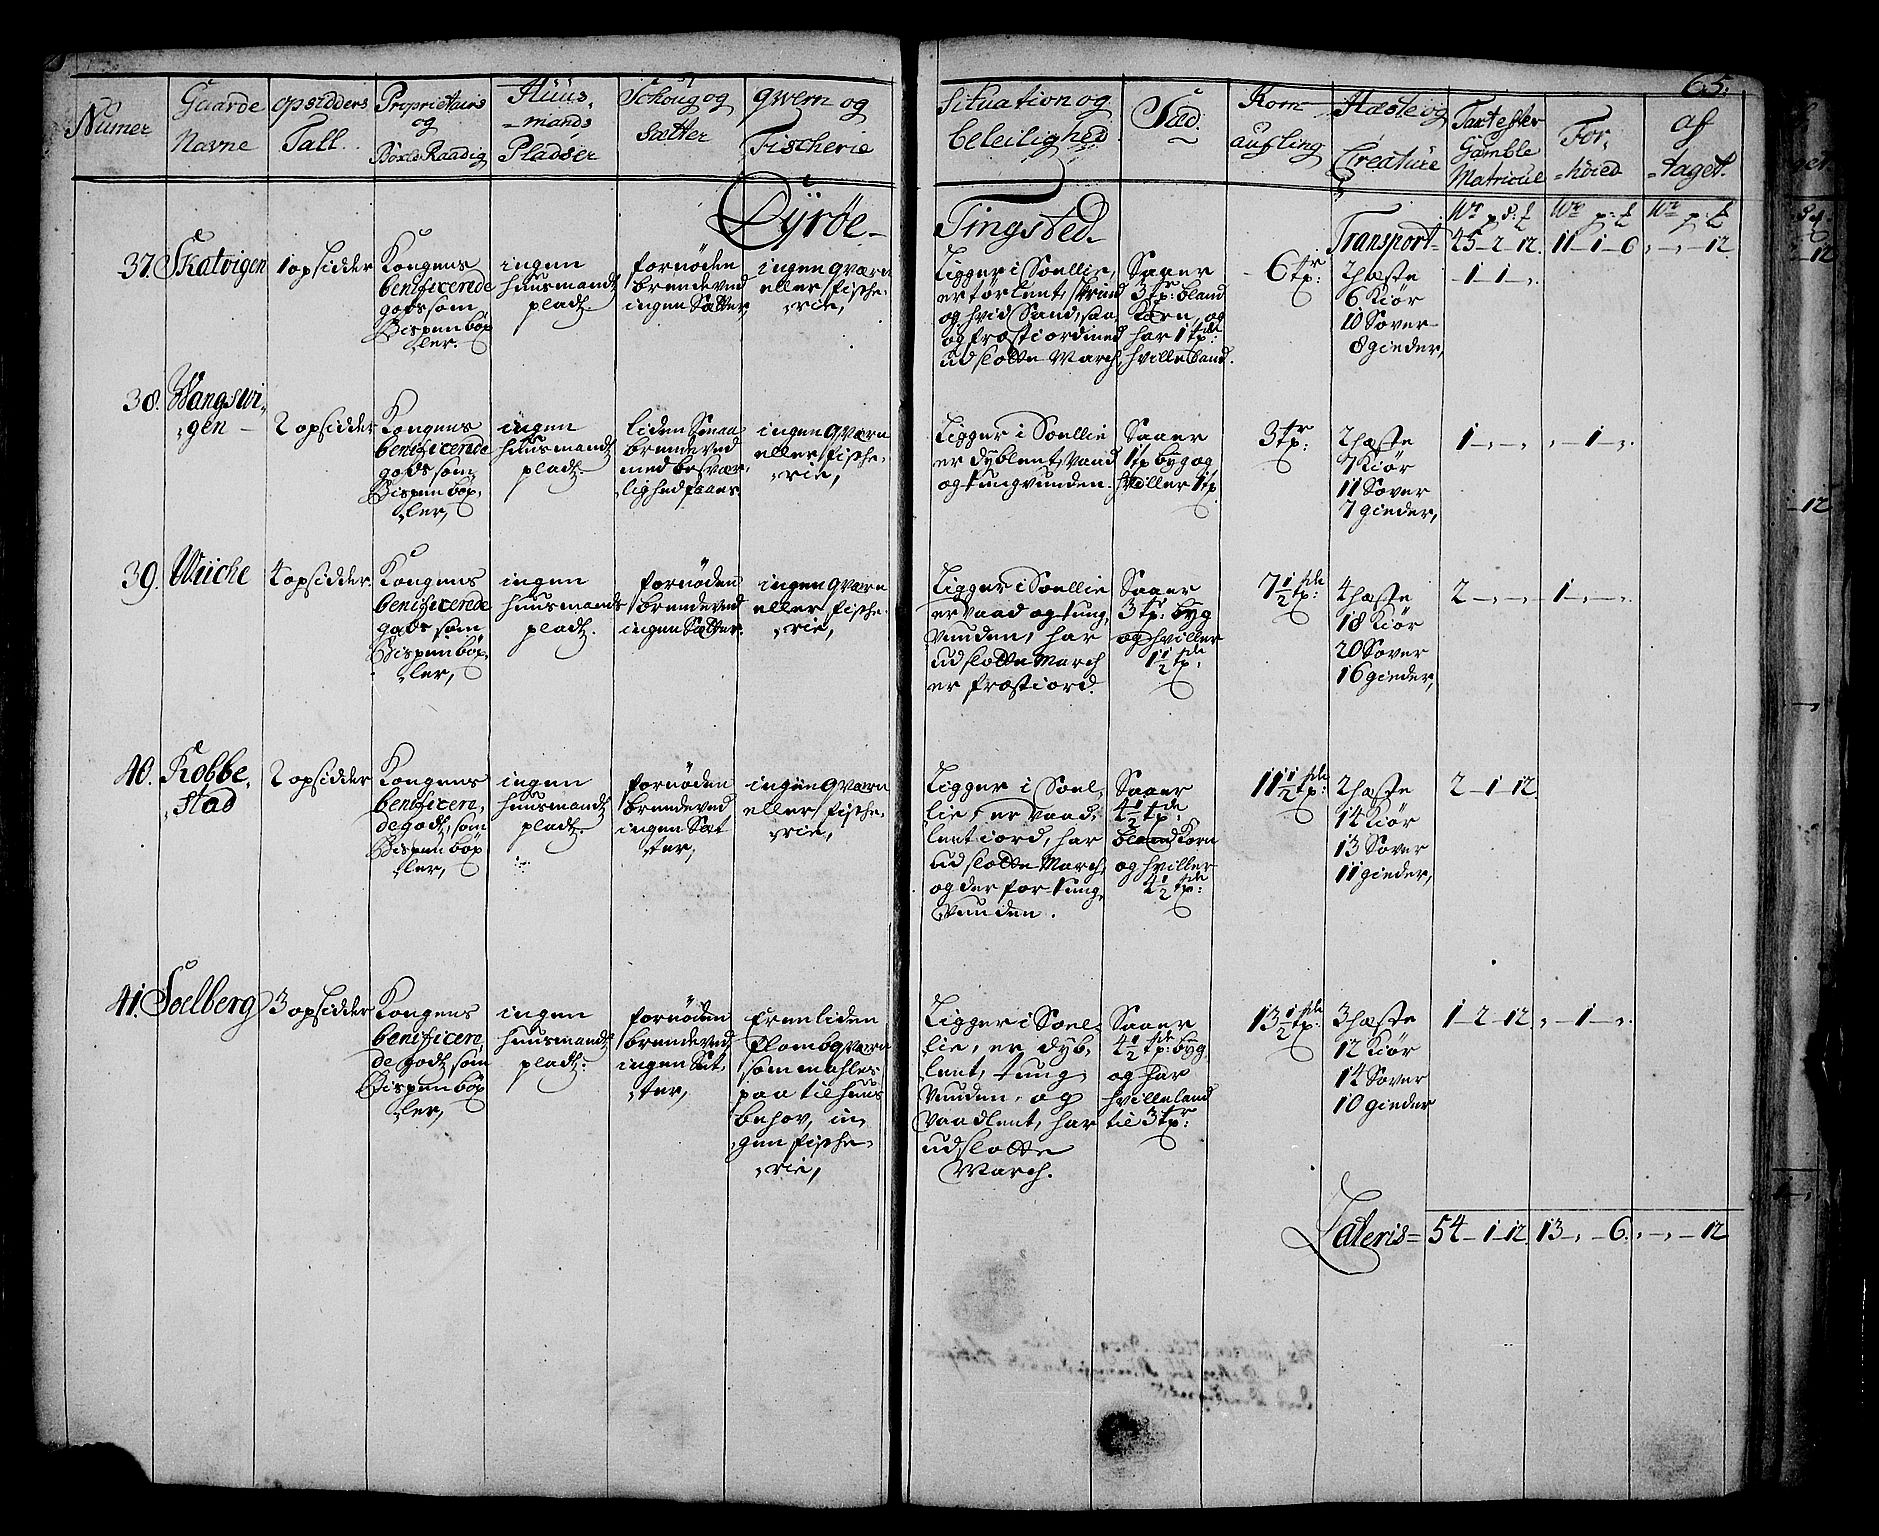 65.
Numer
Gaarde Navne
opsidders Tall.
Proprietairs og Böxel Raadig
Huus-mands Pladser
Schoug og Sætter
qwern og Fischerie
Situation og beleilighed
Sæd.
Korn aufling
Hæste og Creature
Taxt efter Gamble Matricul
For-höied
af-taget.
Dÿröe Tingsted
Wr p d: £ Wr p: £ Wr p £
Transport 45-2-12. 11-1-6 ,-,-12
37. Skatvigen
1 opsidder
Kongens
benificerede
gods som
Bispen böx
ler.
ingen
huusmands
pladz
fornöden
brendeved
ingen Sætter
ingen qværn
eller fische,
rie,
Ligger i Soellie,
er tørlent, skrind
og hvid Sand, saa
og fræstiord med
udslotte March
Saaer
3 tr: bland
Korn, og
har 1 tde:
hvilleland.
6 tr:
2 hæste
6 Kiör
10 Sover
8 gieder,
1-1-,
38. Wangswi,
gen
2 opsidder
Kongens
benificerede
gods som
Bispen böx,
ler,
ingen
huusmands
pladz.
liden Smaa
brendeved
med besvær,
lighed faaes
ingen qværn
eller fische,
rie,
Ligger i Soellie
er dyblent, Vaad
og tungvunden.
Saaer
1 tr byg og
hviller 1 tr
3 tr:
2 hæste
7 Kiör
11 Sover
7 gieder,
1-,-, ,-1-,
39. Wiiche
4 opsidder
Kongens
benificerede
gods som
Bispen böx,
ler,
ingen
huusmands
pladz.
fornöden
brendeved
ingen Sætter.
ingen qværn
eller fische,
rie,
Ligger i Soellie
er vaad og tung,
vunden, har
udslotte March
er fræstiord.
Saaer
3 tr: byg
og hviller
1½ tde:
7½ tde:
4 hæste
18 Kiör
20 Sover
16 gieder,
2-,-, 1-,-,
40. Kobbe,
stad
2 opsidder
Kongens
benificere,
de godz, som
Bispen böx
ler,
ingen
huusmands
pladz.
fornöden
brendeved
ingen Sæt
ter,
ingen qværn
eller fische,
rie,
Ligger i Soel,
lie, er vaad,
lent iord, har
udslotte March,
og der for tung,
vunden.
Saaer
4½ tde:
bland Korn
og hviller
4½ tde:
11½ tde:
2 hæste
14 Kiör
13 Sover
11 gieder,
2-1-12.
41. Soelberg
3 opsidder
Kongens
benificere,
de godz som
Bispen böx
ler,
ingen
huusmands
pladz.
fornöden
brendeved
ingen Sæt,
ter,
Er en liden
flomb qværn
som mahles
paa til huus
behov, in,
gen fische,
rie,
Ligger i Soel,
lie, er dyb,
lent, tung
vunden, og
vaadlent, har
udslotte
March.
Saaer
4½ tde: byg
og har
hvilleland
til 3 tr:
13½ tde:
3 hæste
12 Kiör
14 Sover
10 gieder
1-2-12. ,-1-,
Lateris = 54-1-12. 13-,-6. ,-,-12